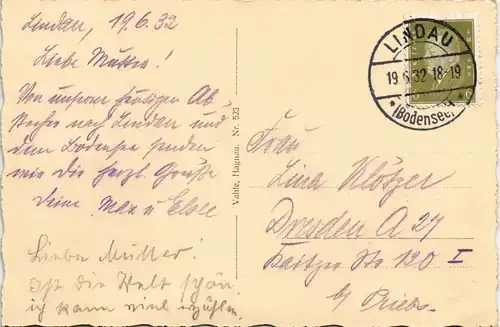 Lindau, 19.6.32
Liebe Mutter!
Von unserem heutigen Ab
stecher nach Lindau und
dem Bodensee senden
wir die herzl. Grüße
Deine Max u Else
Liebe Mutter!
ist die Welt schön,
ich kann viel erzählen.
Vahle, Hagnau. Nr. 523
LINDAU
19.6.32 18-19
*(Bodensee)
Frau
Lina Klötzer
Dresden A 27
Kaitzer Str 120 I
b/ Priebs.